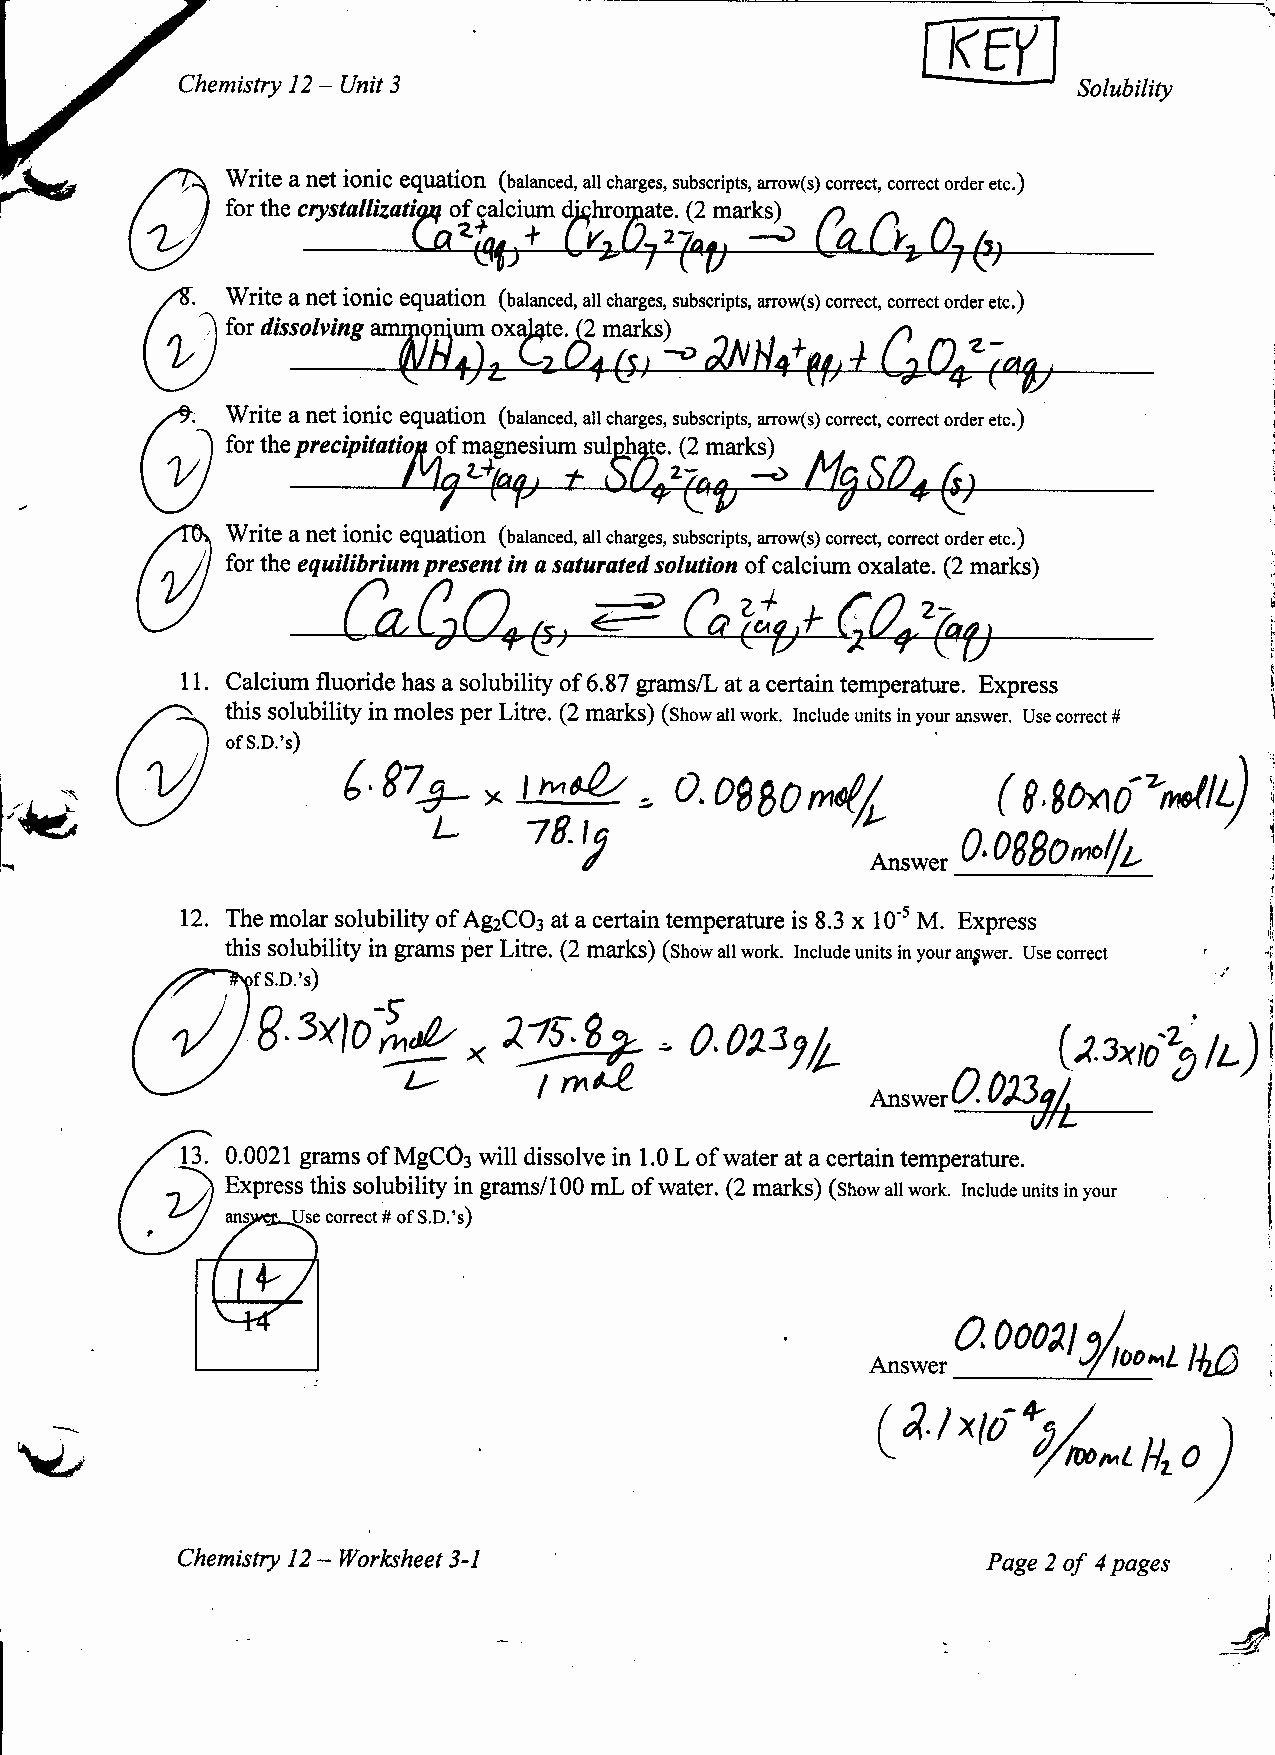 KEY
Chemistry 12 – Unit 3
Solubility
7. Write a net ionic equation (balanced, all charges, subscripts, arrow(s) correct, correct order etc.)
for the crystallization of calcium dichromate. (2 marks)
2
Ca²⁺(aq) + Cr₂O₇²⁻(aq) → CaCr₂O₇(s)
8. Write a net ionic equation (balanced, all charges, subscripts, arrow(s) correct, correct order etc.)
for dissolving ammonium oxalate. (2 marks)
2
(NH₄)₂C₂O₄(s) → 2NH₄⁺(aq) + C₂O₄²⁻(aq)
9. Write a net ionic equation (balanced, all charges, subscripts, arrow(s) correct, correct order etc.)
for the precipitation of magnesium sulphate. (2 marks)
2
Mg²⁺(aq) + SO₄²⁻(aq) → MgSO₄(s)
10. Write a net ionic equation (balanced, all charges, subscripts, arrow(s) correct, correct order etc.)
for the equilibrium present in a saturated solution of calcium oxalate. (2 marks)
2
CaC₂O₄(s) ⇌ Ca²⁺(aq) + C₂O₄²⁻(aq)
11. Calcium fluoride has a solubility of 6.87 grams/L at a certain temperature. Express
this solubility in moles per Litre. (2 marks) (Show all work. Include units in your answer. Use correct #
of S.D.'s)
2
6.87g x 1mol = 0.0880mol/L (8.80x10⁻²mol/L)
L 78.1g
Answer 0.0880mol/L
12. The molar solubility of Ag₂CO₃ at a certain temperature is 8.3 x 10⁻⁵ M. Express
this solubility in grams per Litre. (2 marks) (Show all work. Include units in your answer. Use correct
# of S.D.'s)
2
8.3x10⁻⁵ mol x 275.8g = 0.023g/L (2.3x10⁻²g/L)
L 1 mol
Answer 0.023g/L
13. 0.0021 grams of MgCO₃ will dissolve in 1.0 L of water at a certain temperature.
Express this solubility in grams/100 mL of water. (2 marks) (Show all work. Include units in your
answer. Use correct # of S.D.'s)
2
14
14
Answer 0.00021g/100mL H₂O
(2.1x10⁻⁴g/100mL H₂O)
Chemistry 12 – Worksheet 3-1
Page 2 of 4 pages